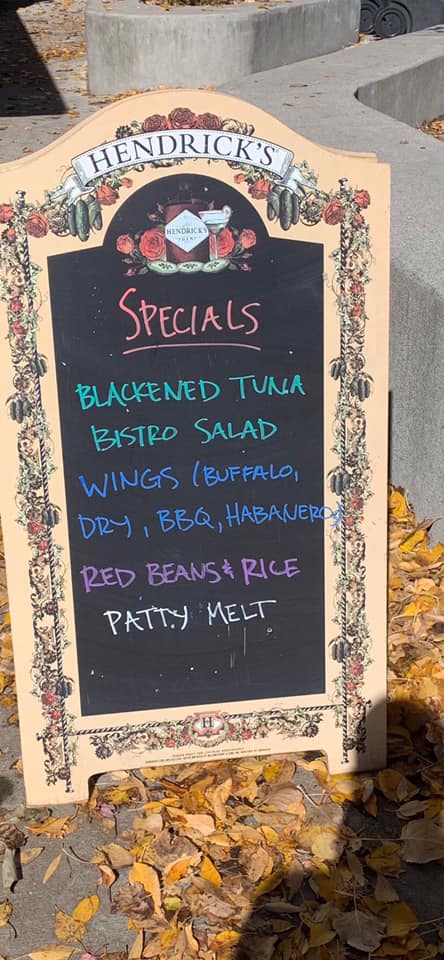 HENDRICK'S
HENDRICK'S
SPECIALS
BLACKENED TUNA
BISTRO SALAD
WINGS (BUFFALO,
DRY, BBQ, HABANERO)
RED BEANS & RICE
PATTY MELT
H